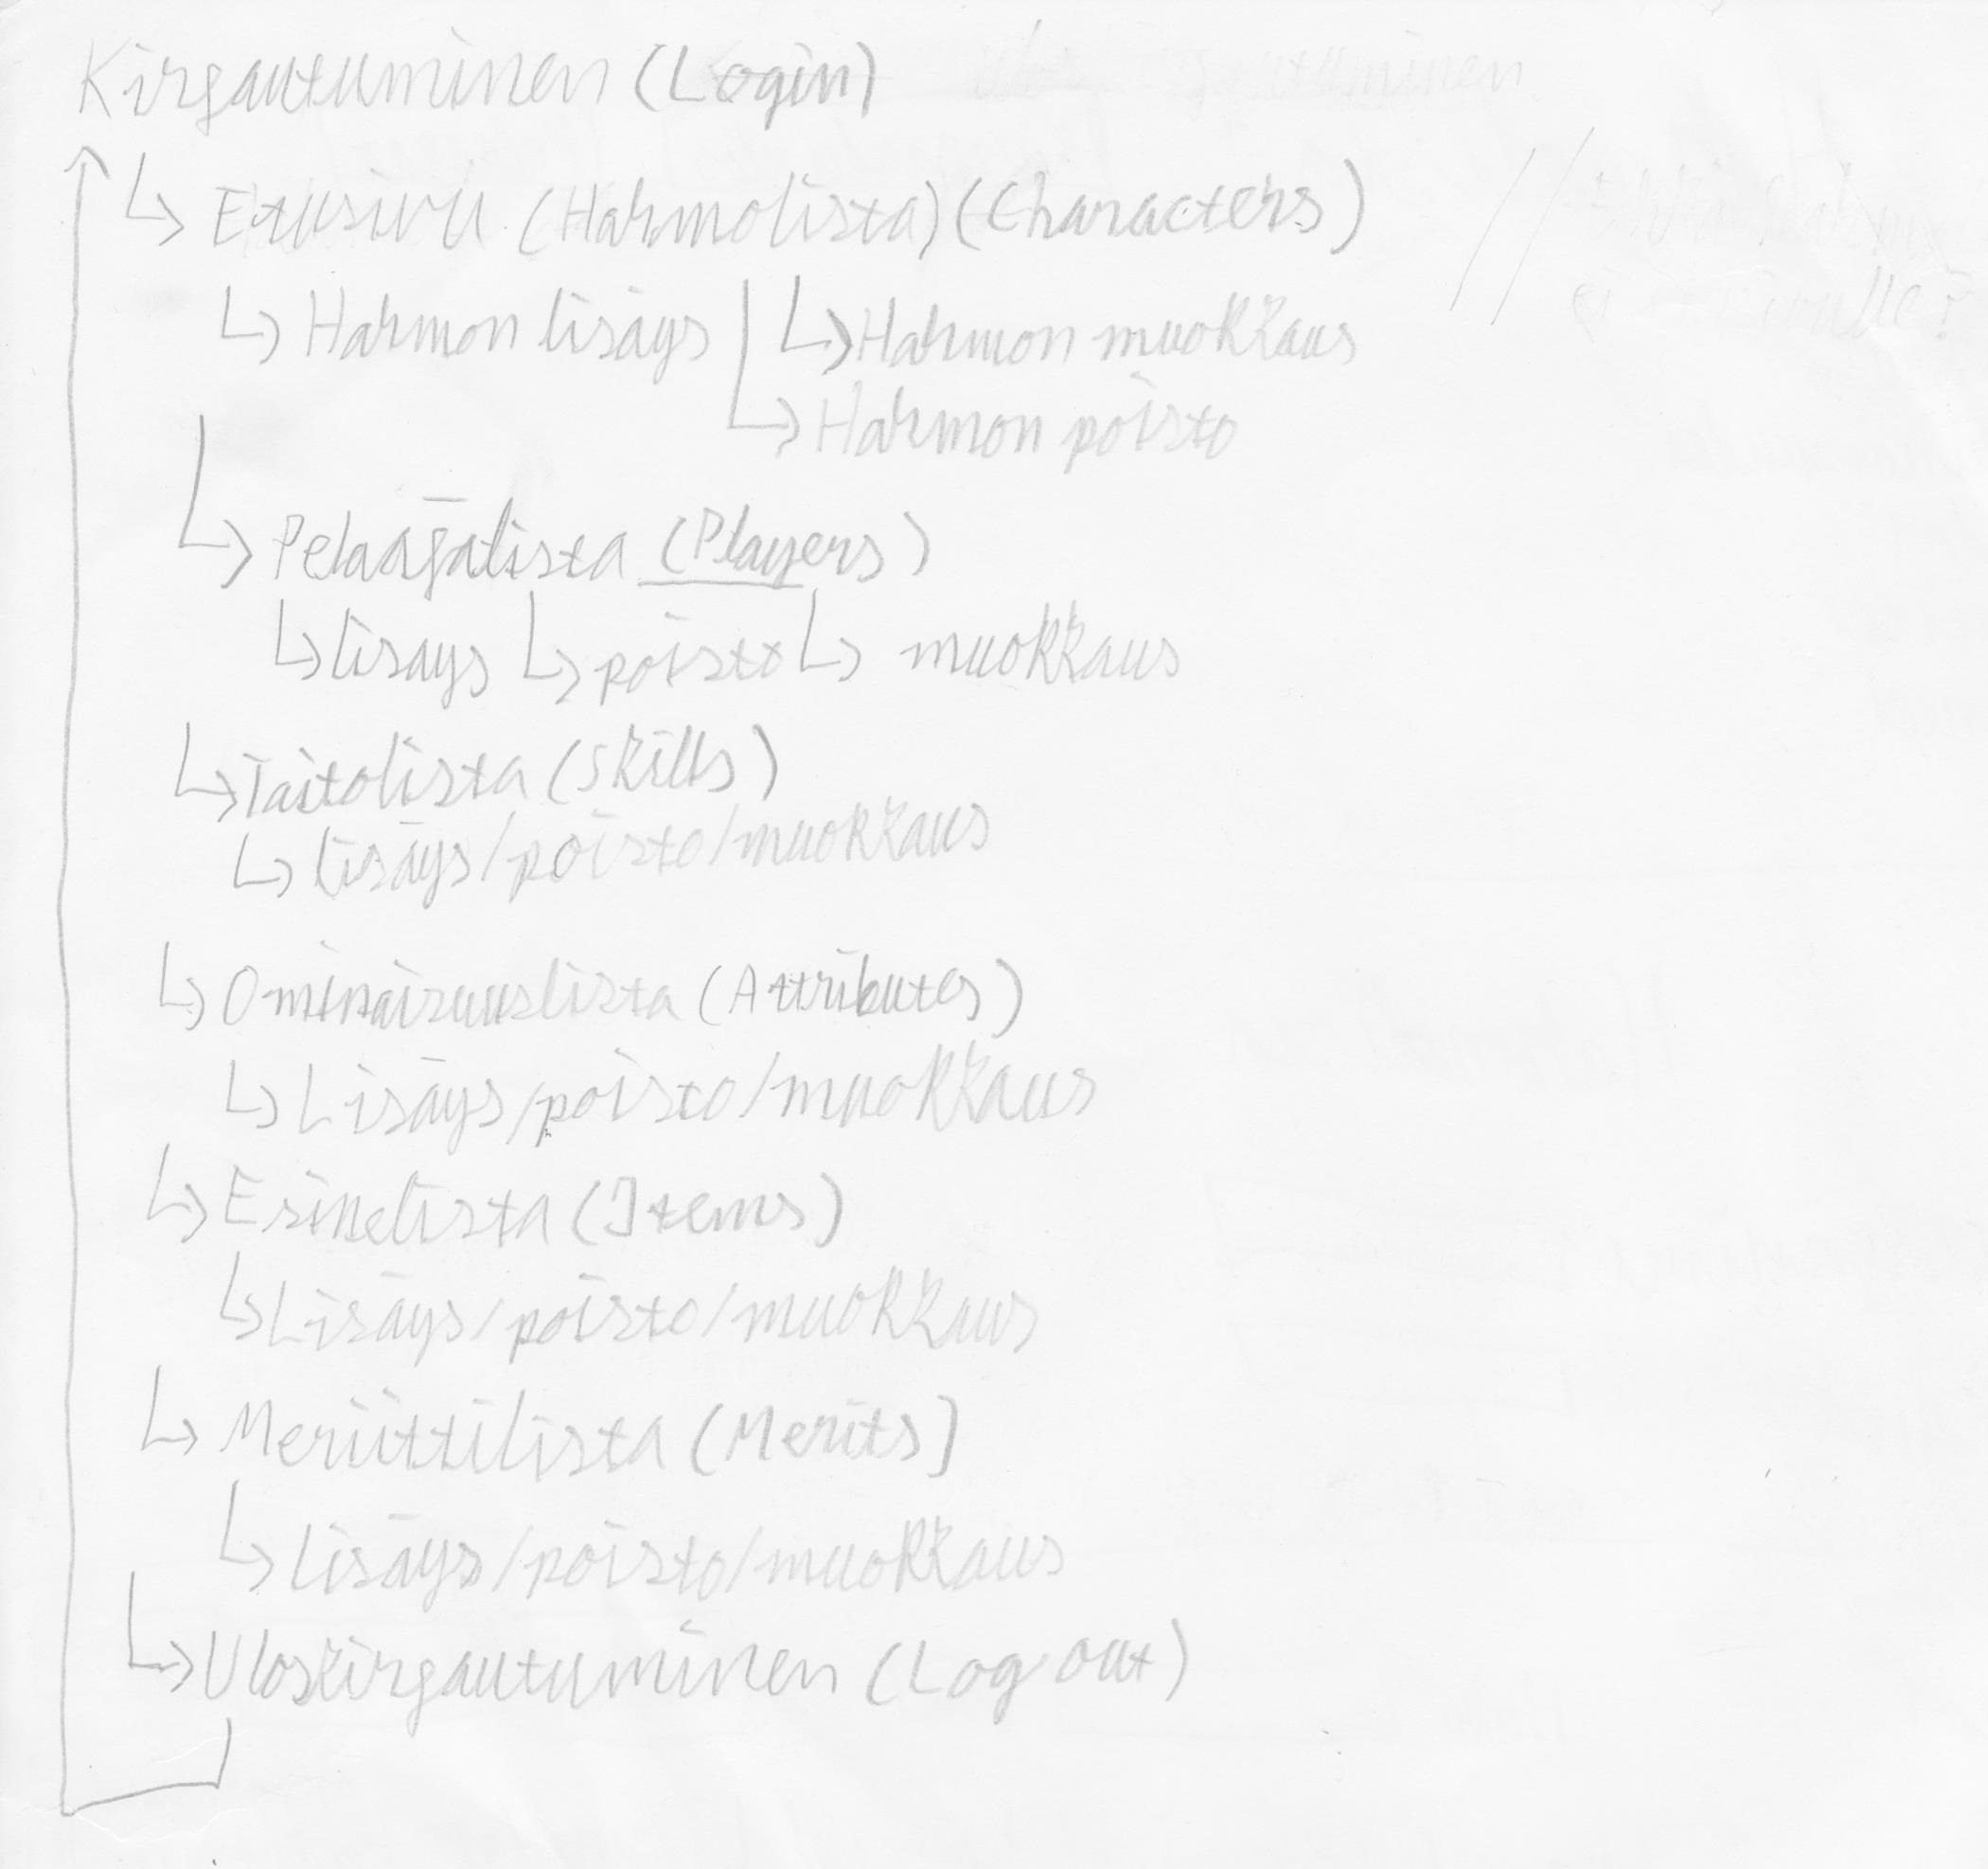 Kirjautuminen (Login)
↳ Etusivu (Hahmolista) (Characters)
↳ Hahmon lisäys ↳ Hahmon muokkaus
↳ Hahmon poisto
↳ Pelaajalista (Players)
↳ lisäys ↳ poisto ↳ muokkaus
↳ Taitolista (Skills)
↳ lisäys/poisto/muokkaus
↳ Ominaisuuslista (Attributes)
↳ Lisäys/poisto/muokkaus
↳ Esinelista (Items)
↳ Lisäys/poisto/muokkaus
↳ Meriittilista (Merits)
↳ Lisäys/poisto/muokkaus
↳ Uloskirjautuminen (Log out)